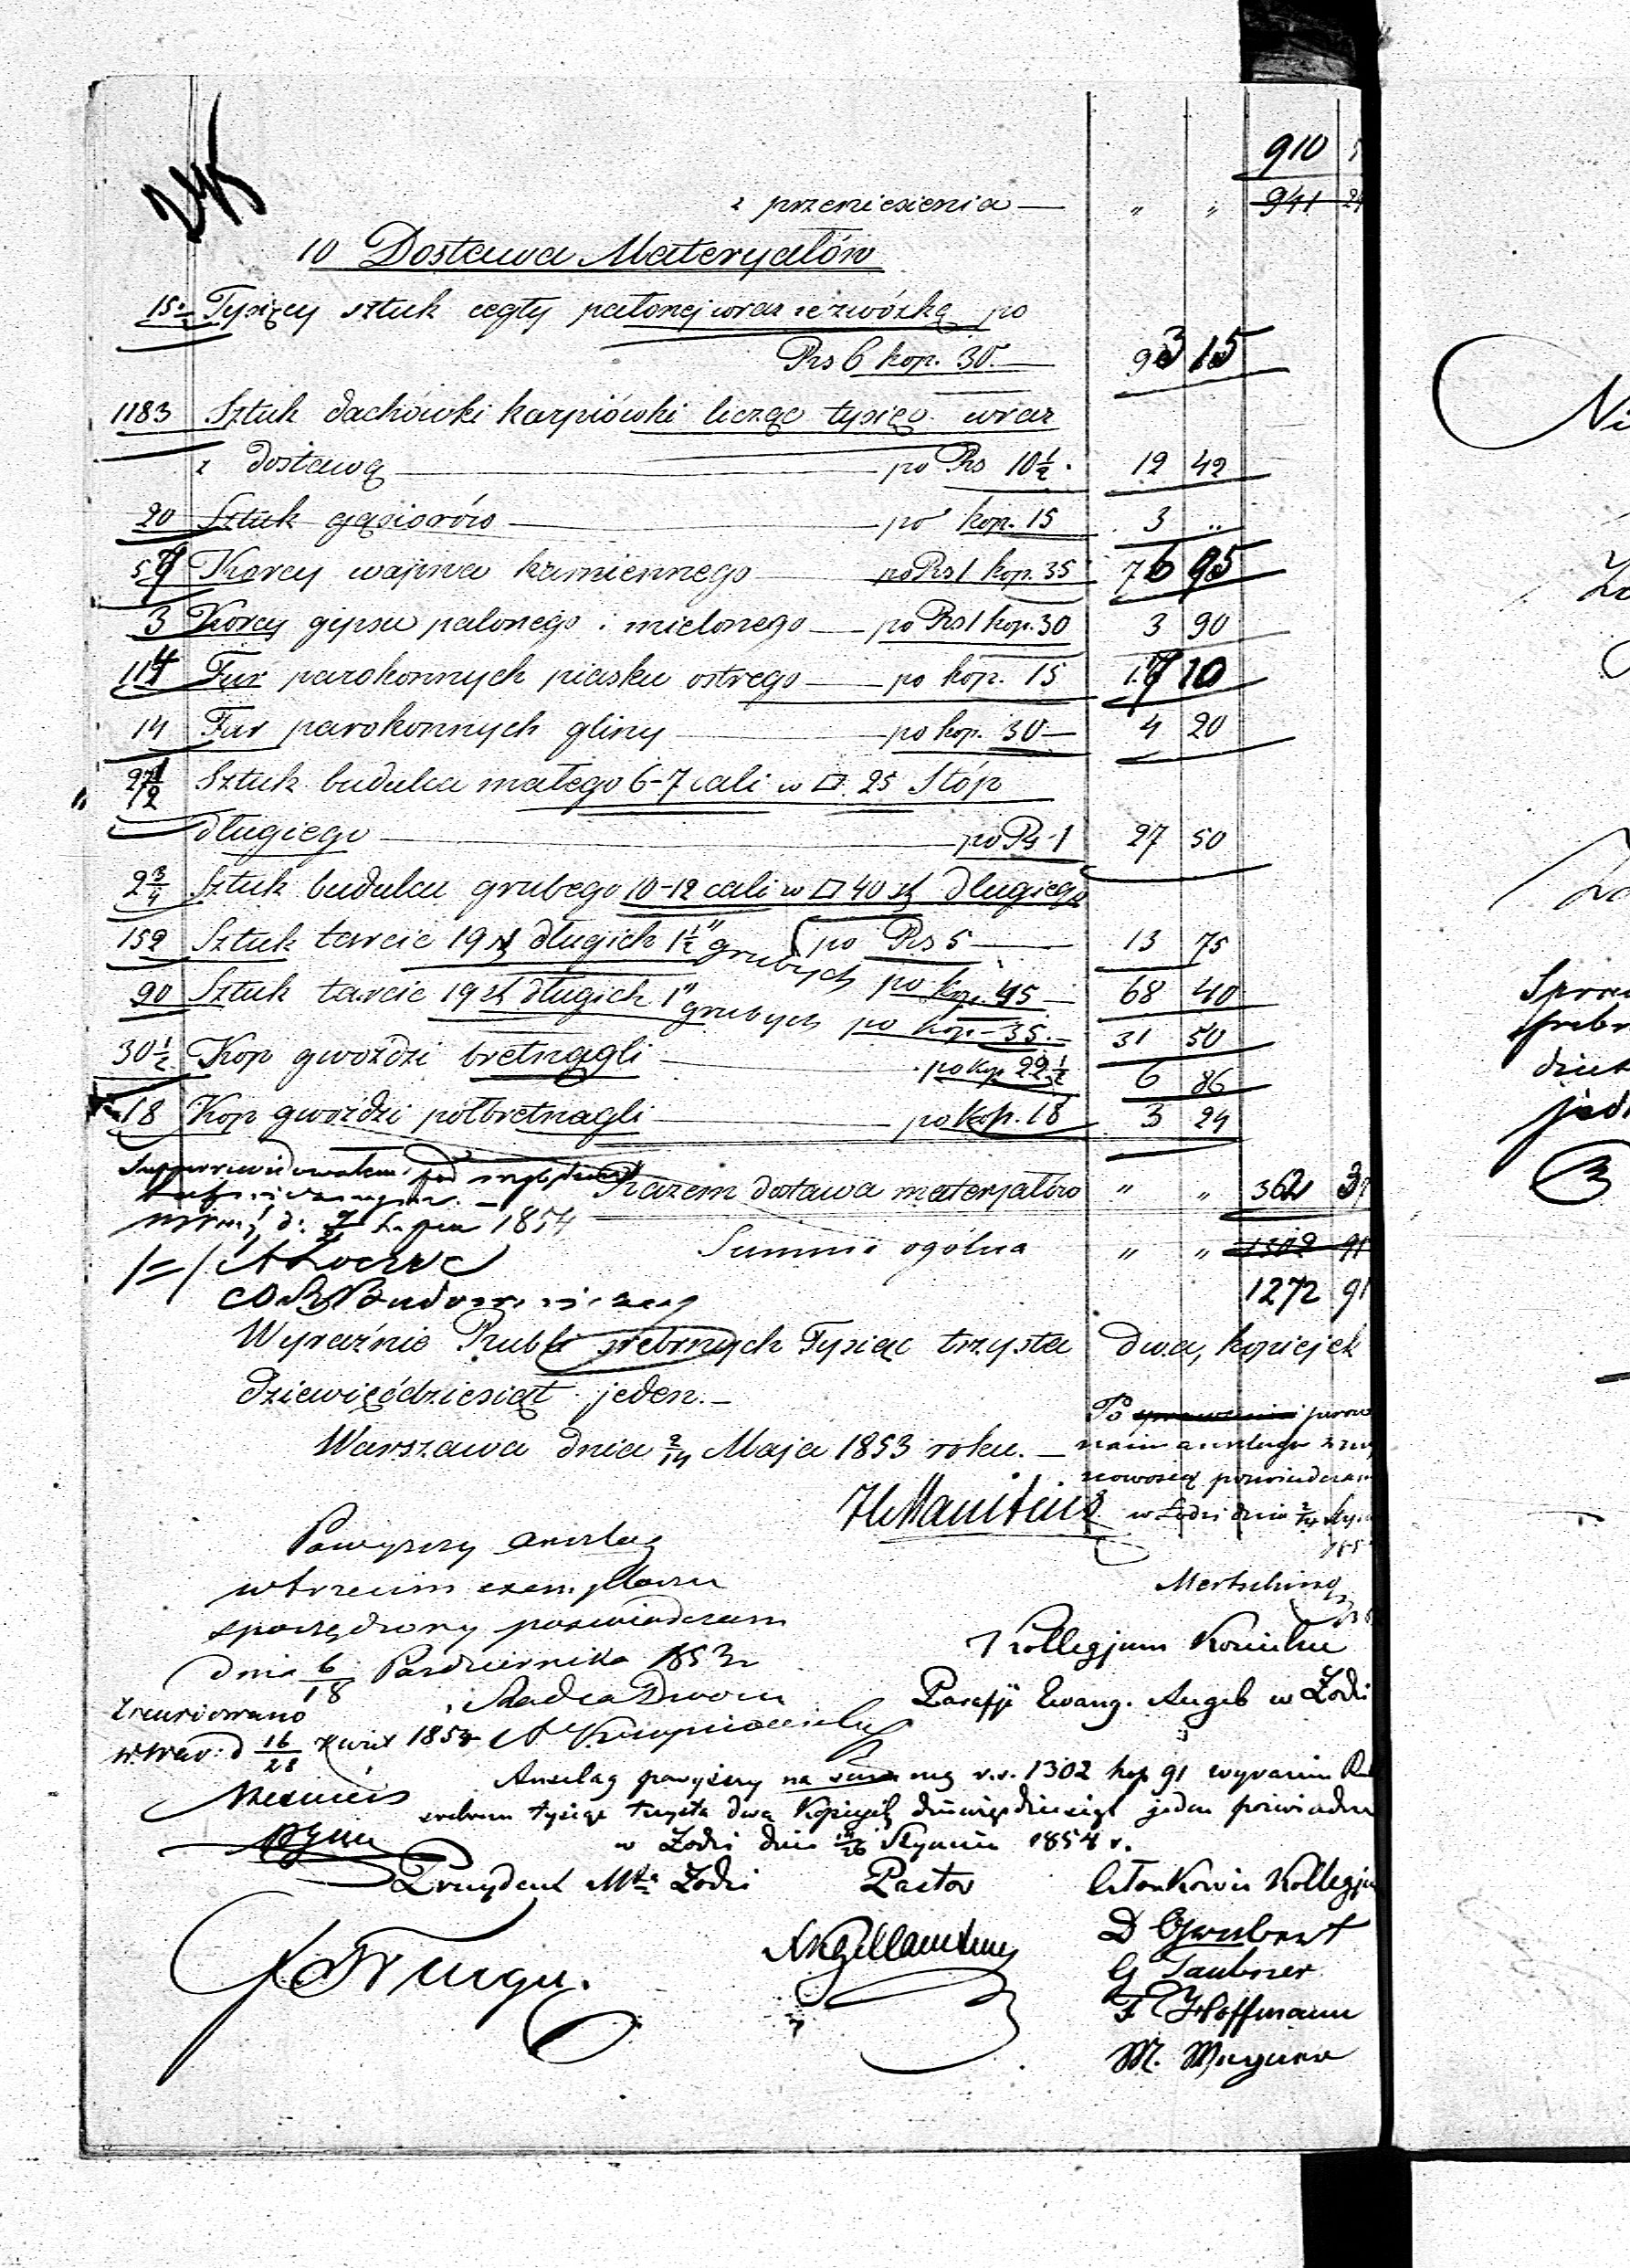 245
910
z przeniesienia — " " 941 24
10 Dostawa Materyałów
15 Tysięcy sztuk cegły palonej wraz ze zwózką po
Rs 6 kop. 30. — 93 15
1183 Sztuk dachówki karpiówki licząc tysiąc wraz
z dostawą — po Rs 10½. 12 42
20 Sztuk gąsiorów — po kop. 15 3 "
57 Korcy wapna kamiennego — po Rs 1 kop. 35 76 95
3 Korcy gipsu palonego i mielonego — po Rs 1 kop. 30 3 90
114 Fur parokonnych piasku ostrego — po kop. 15 17 10
14 Fur parokonnych gliny — po kop. 30 — 4 20
27½ Sztuk budulcu małego 6-7 cali w □. 25 Stóp
długiego — po Rs 1 27 50
2¾ Sztuk budulcu grubego 10-12 cali w □ 40 st długiego
po Rs 5 — 13 75
152 Sztuk tarcic 19 st długich 1½" grubych po kop. 45 — 68 40
90 Sztuk tarcic 19 st długich 1" grubych po kop. 35. — 31 50
30½ Kop gwoździ bretnągli — po kop 22½ 6 86
18 Kop gwoździ półbretnągli — po kop. 18 3 24
Razem dostawa materyałów " " 362 37
1854
Summa ogólna " " 1302 91
1272 91
Wyraźnie Rubli srebrnych Tysiąc trzysta dwa, kopiejek
dziewięćdziesiąt jeden. —
Warszawa dnia 2/14 Maja 1853 roku. —
w Łodzi dnia
Powyższy anszlag
w trzecim exemplarzu
sporządzony poswiadczam
dnia 6/18 Pazdziernika 1853 r
Radca Dworu
Mertsching
Kollegjum Kościelne
Parafji Ewang. Augsb w Łodzi
Zrewidowano
w Warr: d 16/28 Kwiet 1854
Anszlag powyższy na summę r.s. 1302 kop 91 wyraznie Rub
srebrem tysiąc trzysta dwa Kopiejek dziewięćdziesiąt jeden poswiadcza
w Łodzi dnia 14/26 Stycznia 1854 r.
Prezydent Mta Łodzi Pastor Członkowie Kollegju
D Gwubert
G Taubner
F Hoffmann